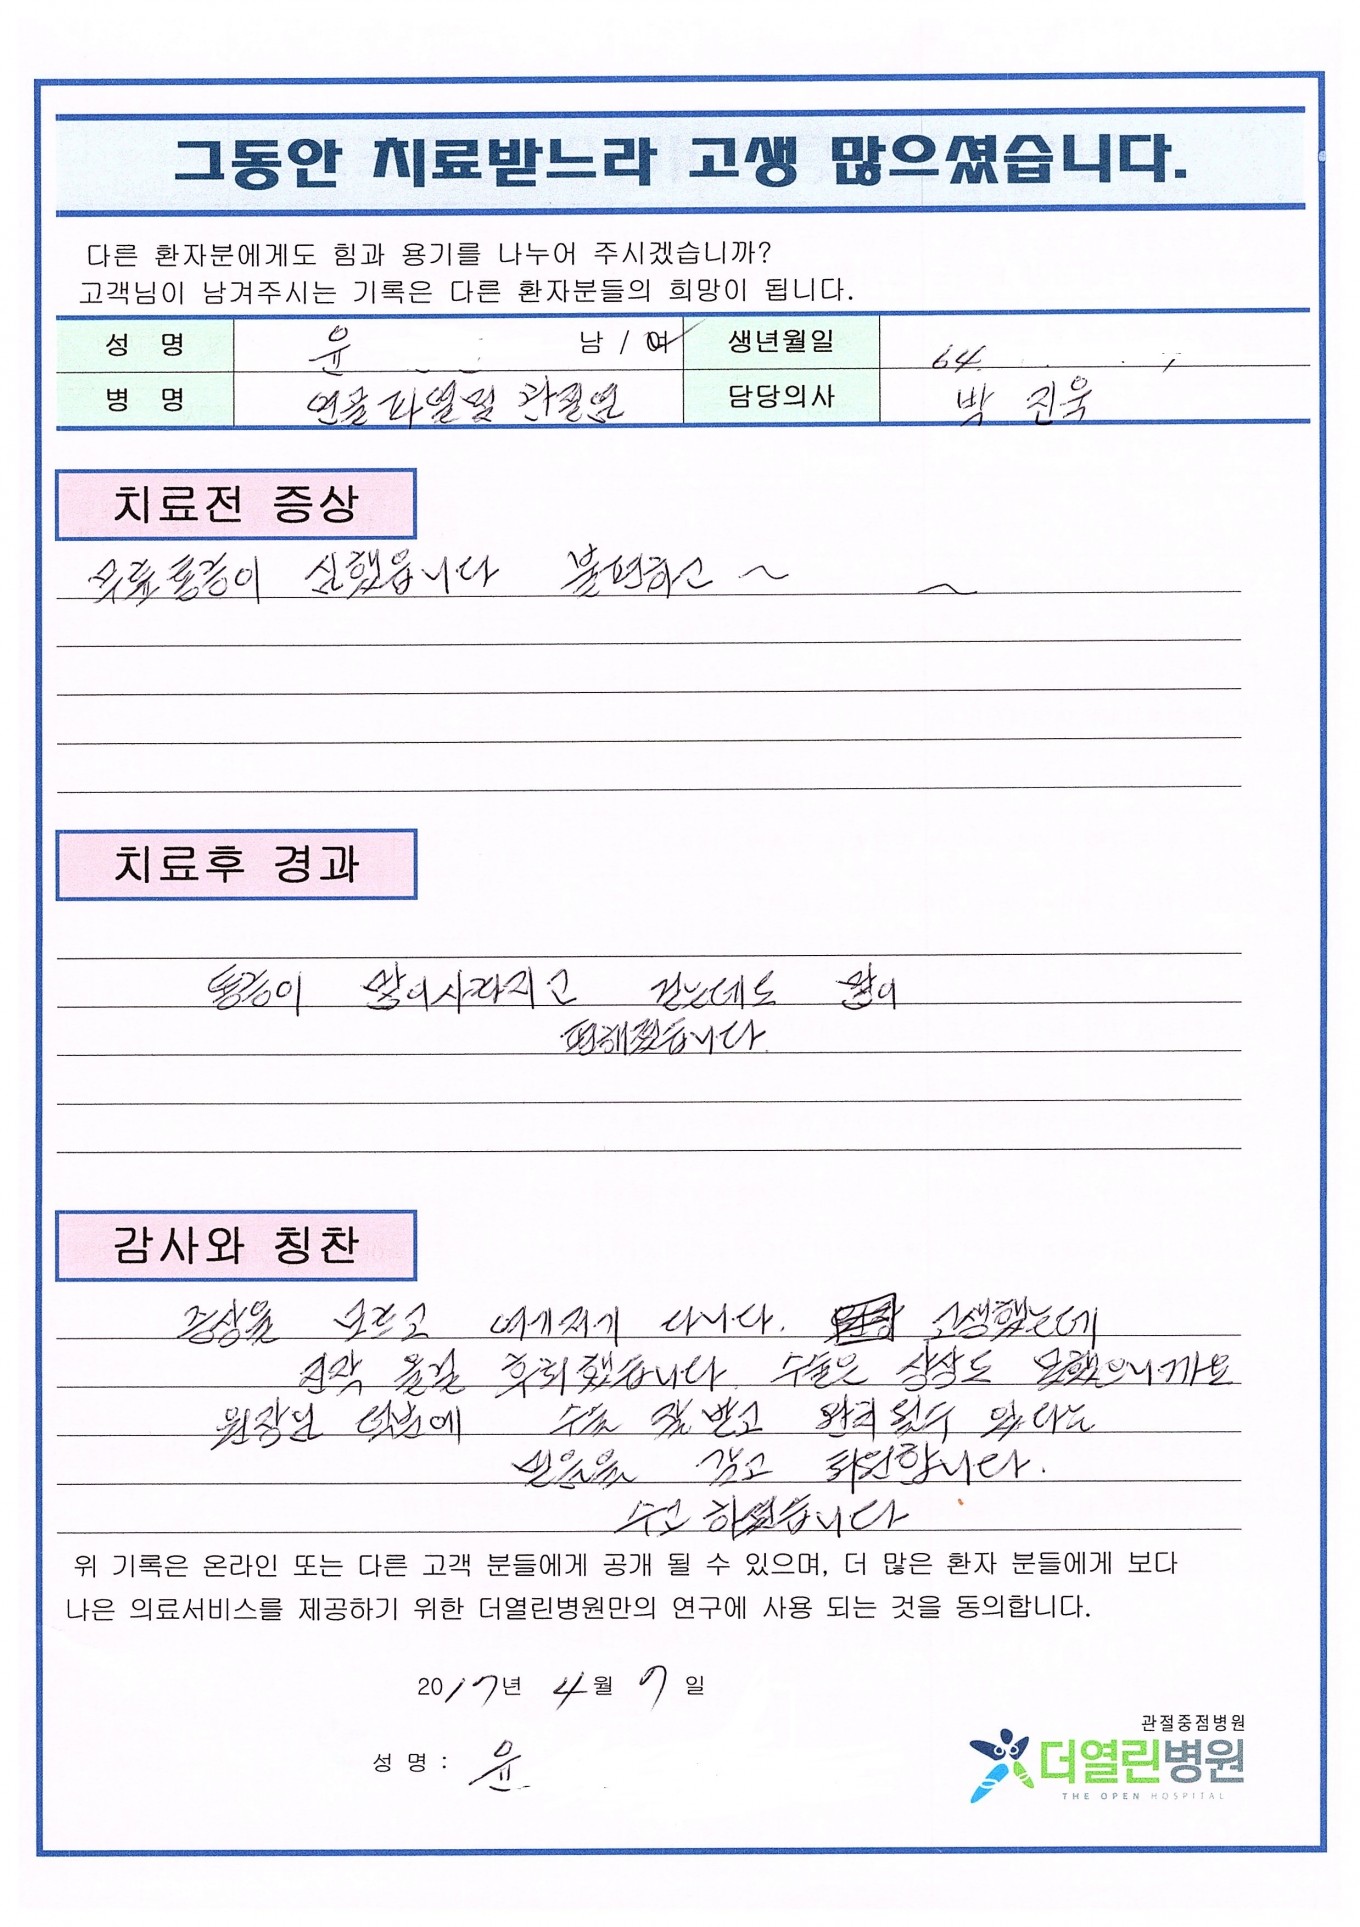 그동안 치료받느라 고생 많으셨습니다.
다른 환자분에게도 힘과 용기를 나누어 주시겠습니까?
고객님이 남겨주시는 기록은 다른 환자분들의 희망이 됩니다.
성 명 윤 남 / 여 생년월일 64.
병 명 연골파열및 관절염 담당의사 박 진욱
치료전 증상
무릎통증이 심했읍니다 불편하고 ~
치료후 경과
통증이 많이사라지고 걷는데도 많이
편해졌습니다.
감사와 칭찬
증상을 모르고 여기저기 다니다. 고생했는데
진작 올걸 후회했습니다 수술은 상상도 못했으니까요
원장님 덕분에 수술 잘 받고 완치될수 있다는
믿음을 갖고 퇴원합니다.
수고 하셨습니다
위 기록은 온라인 또는 다른 고객 분들에게 공개 될 수 있으며, 더 많은 환자 분들에게 보다
나은 의료서비스를 제공하기 위한 더열린병원만의 연구에 사용 되는 것을 동의합니다.
2017년 4월 7일
성 명 : 윤
관절중점병원
더열린병원
THE OPEN HOSPITAL